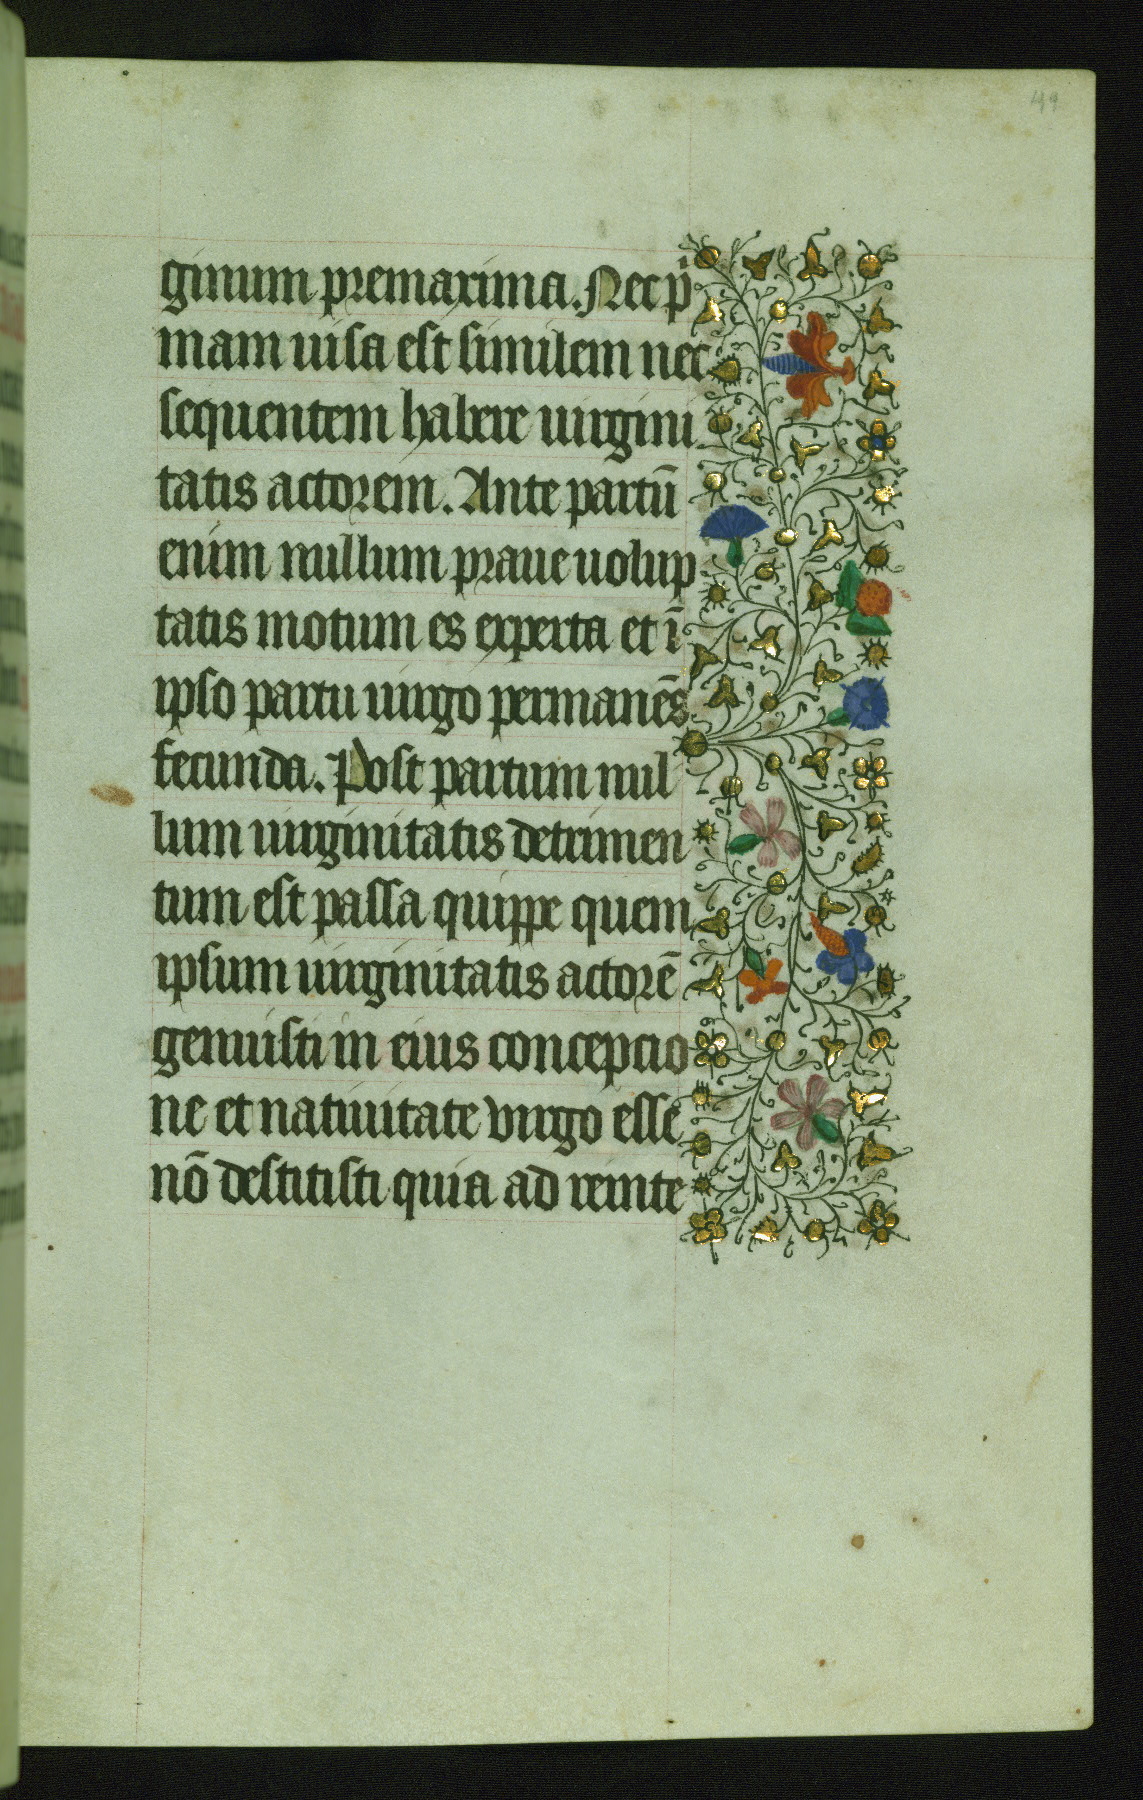 49
ginum premaxima. Nec pi
mam uisa est similem nec
sequentem habere uirgini
tatis actorem. Ante partū
enim nullum praue uolup
tatis motum es experta et ī
ipso partu uirgo permanēs
fecunda. Post partum nul
lum uirginitatis detrimen
tum est passa quippe quem
ipsum uirginitatis actorē
genuisti in eius concepcio
ne et natiuitate virgo esse
nō destitisti quia ad reinte